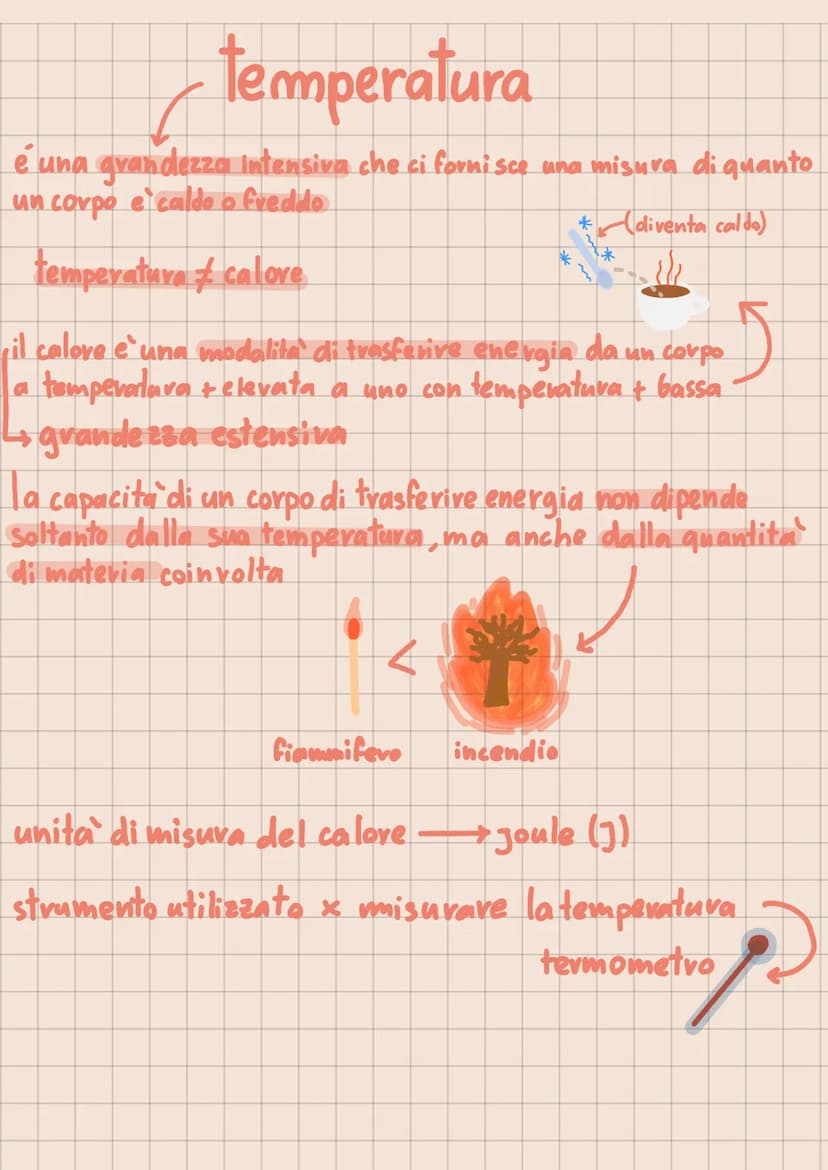 temperatura
é una grandezza intensiva che ci fornisce una misura di quanto
un corpo e' caldo o freddo
(diventa caldo)
temperatura ≠ calore
il calore e' una modalita' di trasferire energia da un corpo
a temperatura + elevata a uno con temperatura + bassa
→ grandezza estensiva
la capacita' di un corpo di trasferire energia non dipende
soltanto dalla sua temperatura, ma anche dalla quantita'
di materia coinvolta
<
fiammifero incendio
unita' di misura del calore → joule (J)
strumento utilizzato x misurare la temperatura
termometro